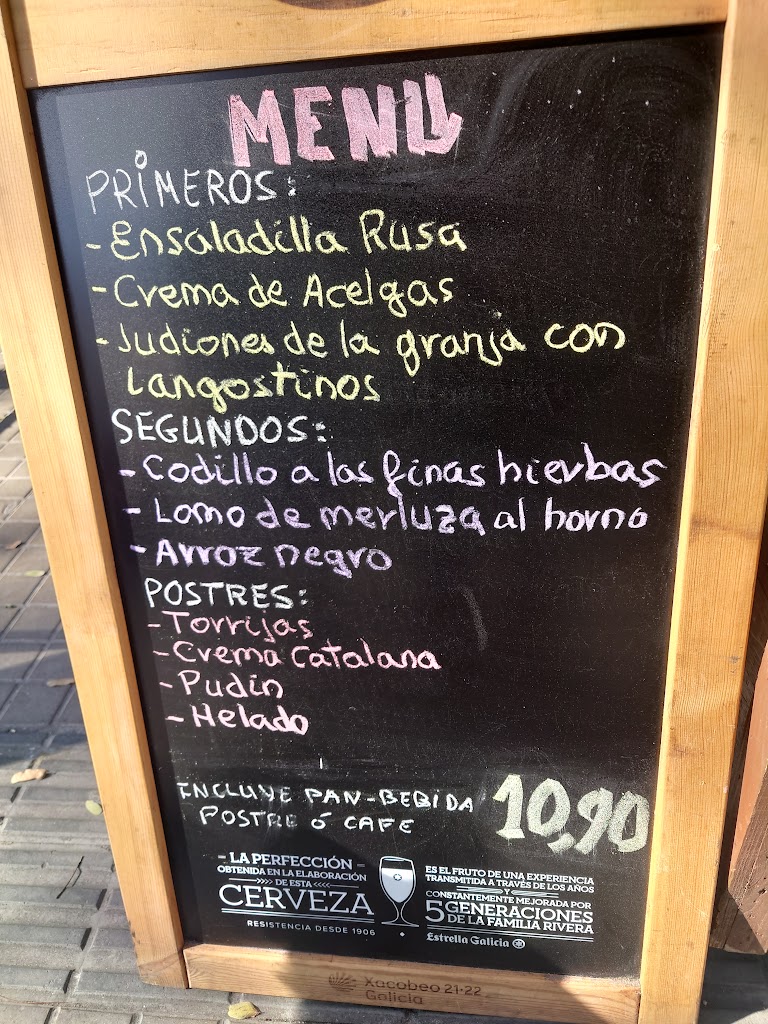 MENU
PRIMEROS:
- Ensaladilla Rusa
- Crema de Acelgas
- Judiones de la granja con
Langostinos
SEGUNDOS:
- Codillo a las finas hierbas
- Lomo de merluza al horno
- Arroz negro
POSTRES:
- Torrijas
- Crema Catalana
- Pudin
- Helado
INCLUYE PAN-BEBIDA
POSTRE ó CAFE
10,90
- LA PERFECCIÓN -
OBTENIDA EN LA ELABORACIÓN
>>>> DE ESTA <<<<
CERVEZA
RESISTENCIA DESDE 1906
ES EL FRUTO DE UNA EXPERIENCIA
TRANSMITIDA A TRAVÉS DE LOS AÑOS
Y
CONSTANTEMENTE MEJORADA POR
5 GENERACIONES
DE LA FAMILIA RIVERA
Estrella Galicia
Xacobeo 21·22
Galicia